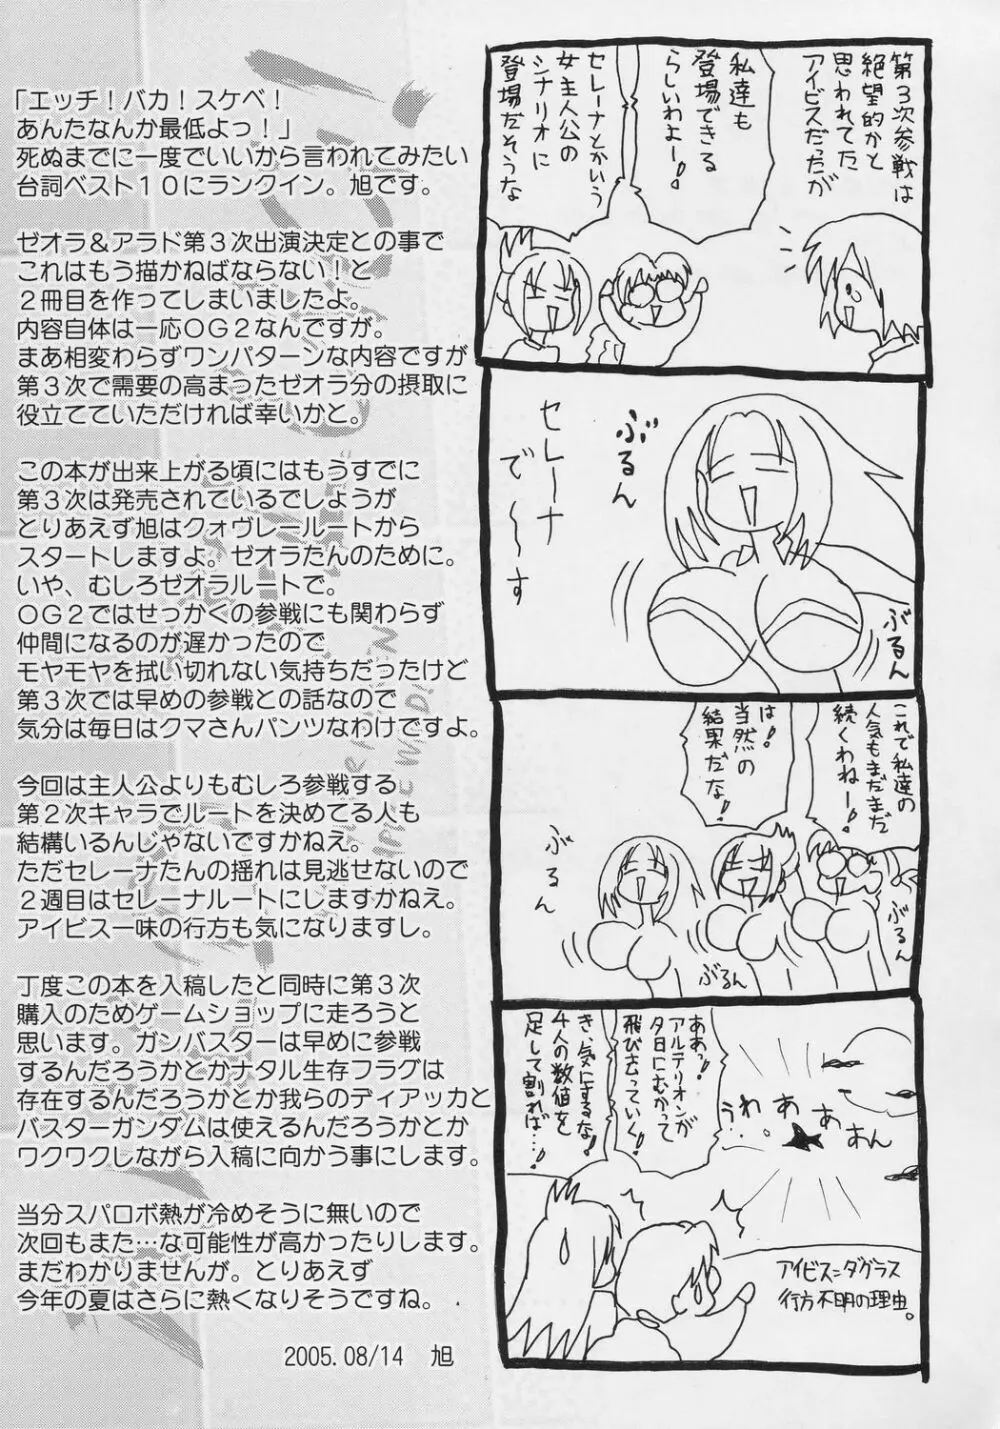 「エッチ！バカ！スケベ！
あんたなんか最低よっ！」
死ぬまでに一度でいいから言われてみたい
台詞ベスト１０にランクイン。旭です。
ゼオラ＆アラド第３次出演決定との事で
これはもう描かねばならない！と
２冊目を作ってしまいましたよ。
内容自体は一応ＯＧ２なんですが。
まあ相変わらずワンパターンな内容ですが
第３次で需要の高まったゼオラ分の摂取に
役立てていただければ幸いかと。
この本が出来上がる頃にはもうすでに
第３次は発売されているでしょうが
とりあえず旭はクォヴレールートから
スタートしますよ。ゼオラたんのために。
いや、むしろゼオラルートで。
ＯＧ２ではせっかくの参戦にも関わらず
仲間になるのが遅かったので
モヤモヤを拭い切れない気持ちだったけど
第３次では早めの参戦との話なので
気分は毎日はクマさんパンツなわけですよ。
今回は主人公よりもむしろ参戦する
第２次キャラでルートを決めてる人も
結構いるんじゃないですかねえ。
ただセレーナたんの揺れは見逃せないので
２週目はセレーナルートにしますかねえ。
アイビス一味の行方も気になりますし。
丁度この本を入稿したと同時に第３次
購入のためゲームショップに走ろうと
思います。ガンバスターは早めに参戦
するんだろうかとかナタル生存フラグは
存在するんだろうかとか我らのディアッカと
バスターガンダムは使えるんだろうかとか
ワクワクしながら入稿に向かう事にします。
当分スパロボ熱が冷めそうに無いので
次回もまた…な可能性が高かったりします。
まだわかりませんが。とりあえず
今年の夏はさらに熱くなりそうですね。
2005.08/14　旭
第３次参戦は
絶望的かと
思われてた
アイビスだったが
私達も
登場できる
らしいわよー！
セレーナとかいう
女主人公の
シナリオに
登場だそうな
ぶるん
セレーナ
で～す
ぶるん
これで私達の
人気もまだまだ
続くわねー！
は！
当然の
結果だな！
ぶるん
ぶるん
ぶるん
うわぁああぁん
ああっ！
アルテリオンが
夕日にむかって
飛びさっていく！
き、気にするな！
４人の数値を
足して割れば…！
アイビス＝ダグラス
行方不明の理由。